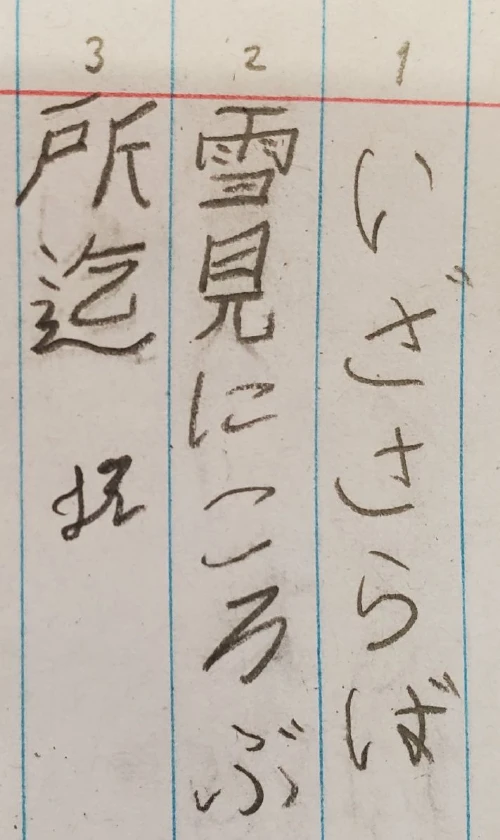 1
いざさらば
2
雪見にころぶ
3
所迄